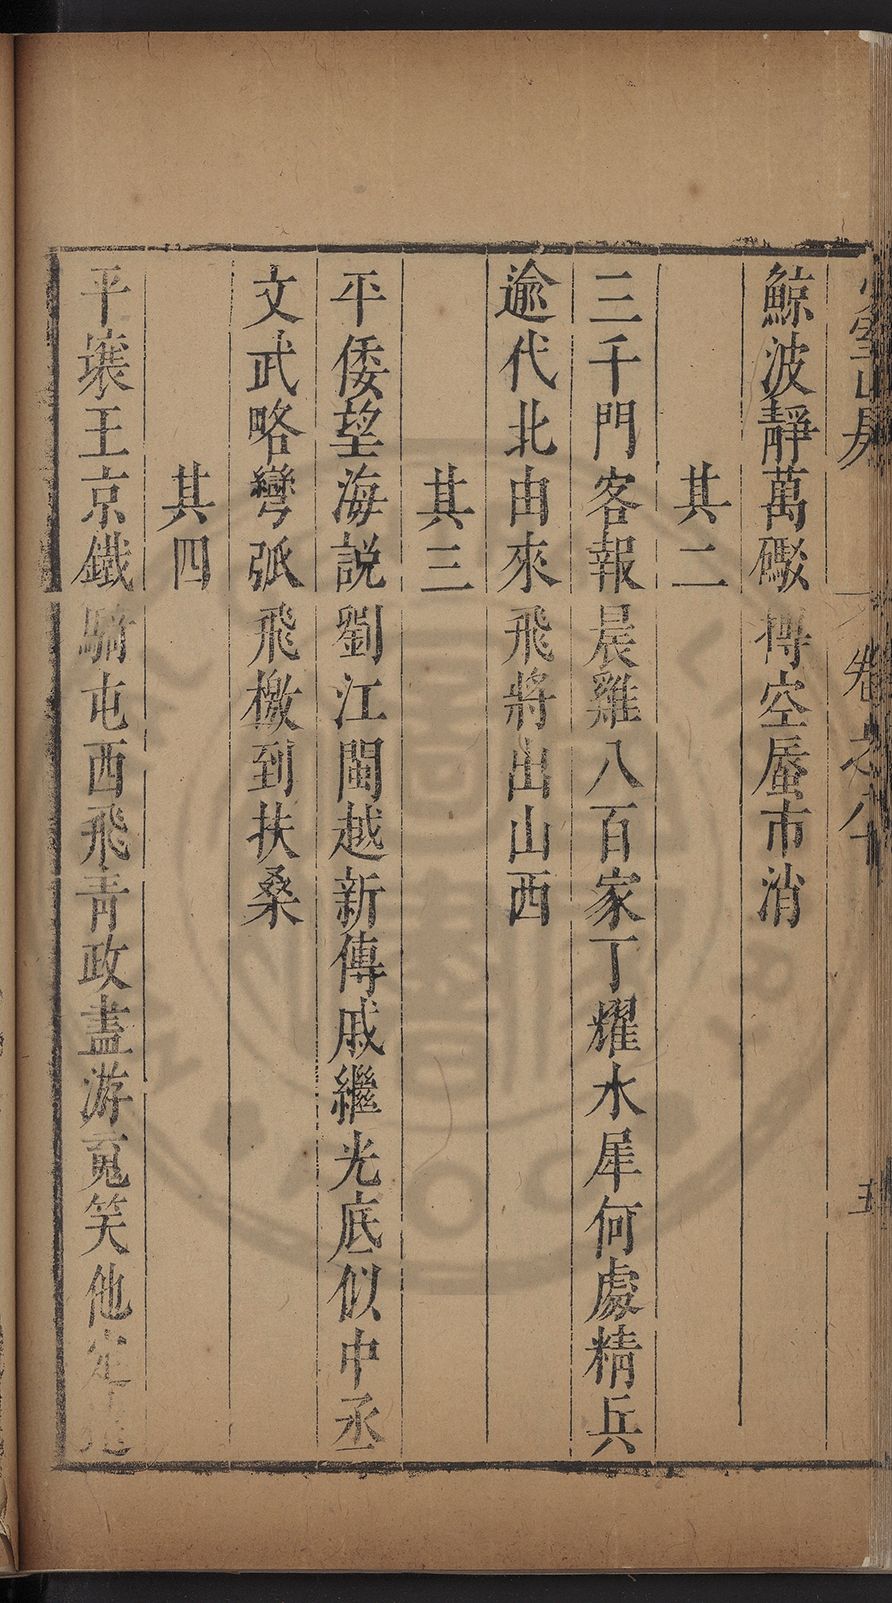 雲山房 卷之八十 五
鯨波靜萬礟摶空蜃市消
其二
三千門客報晨雞八百家丁耀水犀何處精兵
逾代北由來飛將出山西
其三
平倭望海説劉江閩越新傳戚繼光底似中丞
文武略彎弧飛檄到扶桑
其四
平壤王京鐵騎屯西飛青政盡游䰟笑他定遠